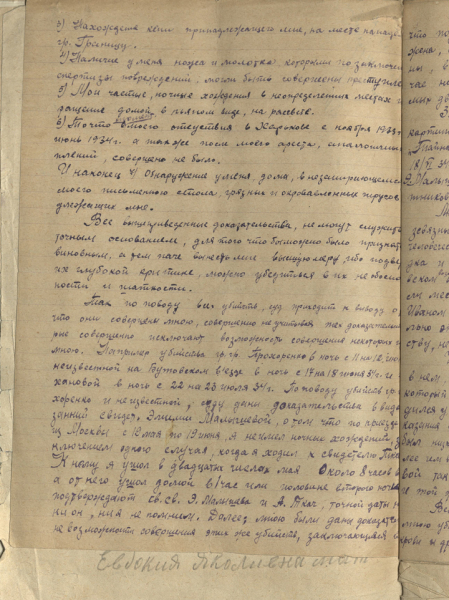 3) Нахождение кепи принадлежащего мне, на месте нападе
гр. Проницу.
4) Наличие у меня ножа и молотка которыми по заключени
спертизы повреждений, могли быть совершены преступле
5) Мои частые, ночные хождения в неопределенных местах и
ращение домой, в пьяном виде, на рассвете.
6) То что в моего отсутствия в Харькове с ноября 1933г
июнь 1934г. а также после моего ареста, аналогичных
плений, совершено не было.
И наконец 7) Обнаружение у меня, дома, в незапирающемся
моего письменного стола, грязных и окровавленных трусов
длежащих мне.
Все вышеприведенные доказательства, не могут служить
точным основанием, для того что бы можно было признать
виновным, а тем паче вынести мне высшую меру, ибо подвер
их глубокой критике, можно убедиться в их необосно
ности и шаткости.
Так по поводу всех убийств, суд приходит к выводу о
что они совершены мною, совершенно не учитывая тех доказательств
рые совершенно исключают возможность совершения некоторых и
мною. Например убийства гр. гр. Прохоренко в ночь с 11 на 12
неизвестной на Бутовском в'езде в ночь с 17 на 18 июня 34г. и
халовой в ночь с 22 на 23 июля 34г. По поводу убийств гр.
хоренко и неизвестной, суду даны доказательства в виде
заний свидет. Эмилии Мальцевой, о том что по приезде
из Москвы с 18 мая по 19 июня. Я не имел ночных хождений, з
ключением одного случая, когда я ходил к свидетелю Ткач
К нему я ушол в двадцатых числах мая около 8 часов в
а от него ушол домой в час или половине второго ночи
подтверждают св. св. Э. Мальцева и А. Ткач, точной даты н
ни он, ни я не помнем. Далее мною были даны доказател
невозможности совершения этих же убийств, заключающийся в
Евдокия
что по
жена,
ны, в
час не
мых дв
картин
"Тайна
18/VI 34
Э. Мальц
тников